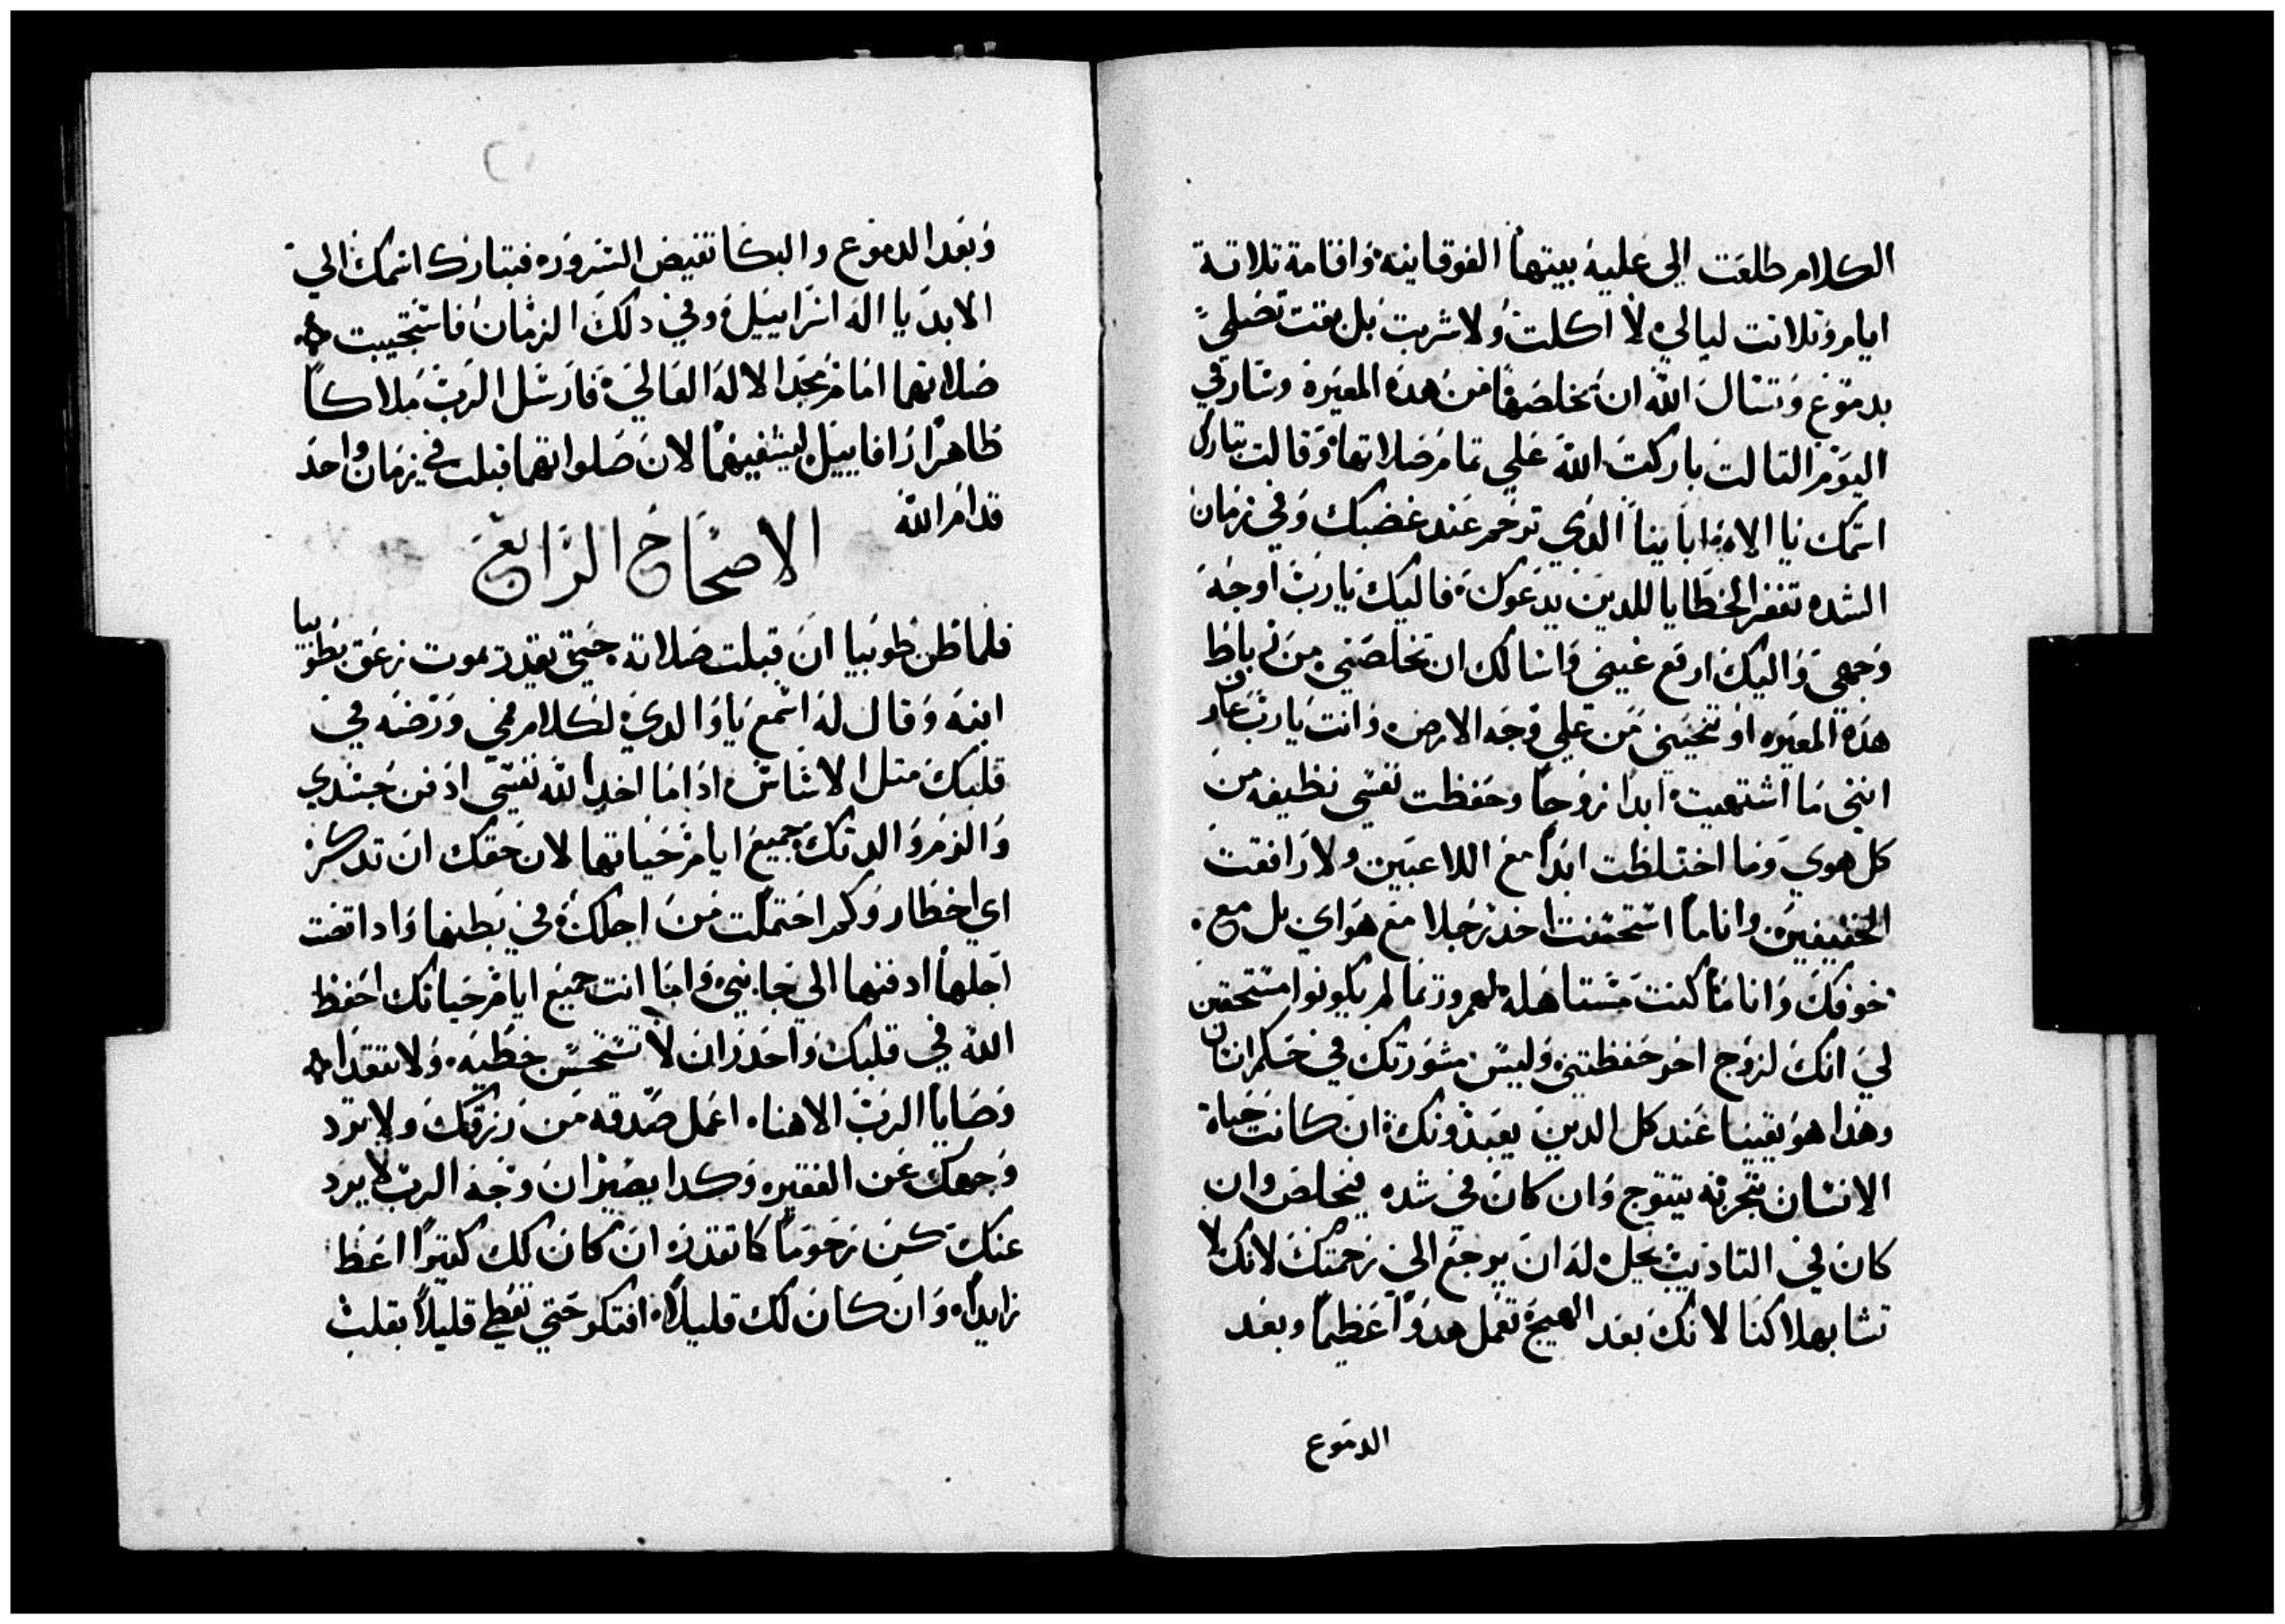 الكلام طلعت الي علية بيتها الفوقانيه واقامة تلاتة
ايام وتلاتت ليالي لا اكلت ولا شربت بل بقت تصلي
بدموع وتسال الله ان يخلصها من هده المعيره وسار في
اليوم التالت باركت الله علي تمام صلاتها وقالت تبارك
اسمك يا الاه اباينا الدي ترحم عند غضبك وفي زمان
الشده تغفر الخطايا للدين يدعوك فاليك يارب اوجه
وجهي واليك ارفع عيني واسالك ان تخلصني من رباط
هده المعيره او تنحيني من علي وجه الارض وانت يارب عارف
انني ما اشتهيت ابدا زوجا وحفظت نفسي نظيفه من
كل هوي وما اختلطت ابدا مع اللاعبين ولا رافقت
الخفيفين وانا ما استحسنت اخد رجلا مع هواي بل مع
خوفك وانا ما كنت مستاهله لهم وربما لم يكونوا مستحقين
لي انك لزوج اخر حفظتني وليس مشورتك في حكم انسان
وهدا هو يقينا عند كل الدين يعبدونك ان كانت حياة
الانسان بتجربه يتتوج وان كان في شده يتخلص وان
كان في التاديب يحل له ان يرجع الي رحمتك لانك لا
تشا بهلاكنا لانك بعد الهيجة تعمل هدوا عظيما وبعد
الدموع
وبعد الدموع والبكا تفيض السروره فيتبارك اسمك الي
الابد يا اله اسراييل وفي دلك الزمان فاستجيبت
صلاتهما امام مجد الاله العالي فارسل الرب ملاكا
طاهرا رافاييل ليشفيهما لان صلواتهما قبلت في زمان واحد
قدام الله
الاصحاح الرابع
فلما ظن طوبيا ان قبلت صلاته حتي يقدر يموت زعق بطوبيا
ابنه وقال له اسمع يا والدي لكلام فمي ورصه في
قلبك متل الاساس ادا ما اخد الله نفسي ادفن جسدي
والزم والدتك جميع ايام حياتها لان حقك ان تدكر
اي اخطار وكم احتملت من اجلك في بطنها وادا تمت
اجلها ادفنها الي جانبي واما انت جميع ايام حياتك احفظ
الله في قلبك واحدر ان لا تستحسن خطيه ولا تفقد
وصايا الرب الاهنا اعمل صدقه من رزقك ولا ترد
وجهك عن الفقير وكدا يصير ان وجه الرب لا يرد
عنك كن رحوما كما تقدر ان كان لك كتيرا اعط
زايدا وان كان لك قليلا افتكر حتي تعطي قليلا بقلب